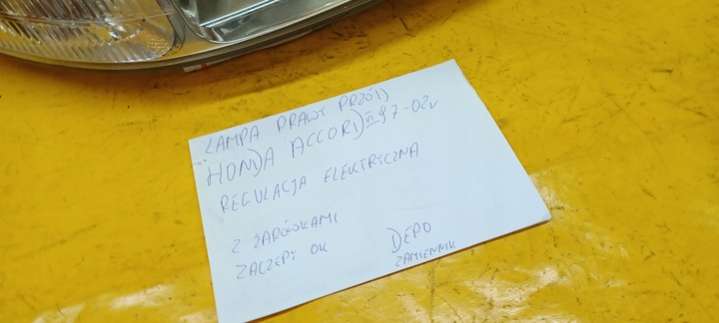 LAMPA PRAWY PRZÓD
HONDA ACCORD VI 97-02r
REGULACJA ELEKTRYCZNA
Z ŻARÓWKAMI
ZACZEPY OK
DEPO
ZAMIENNIK